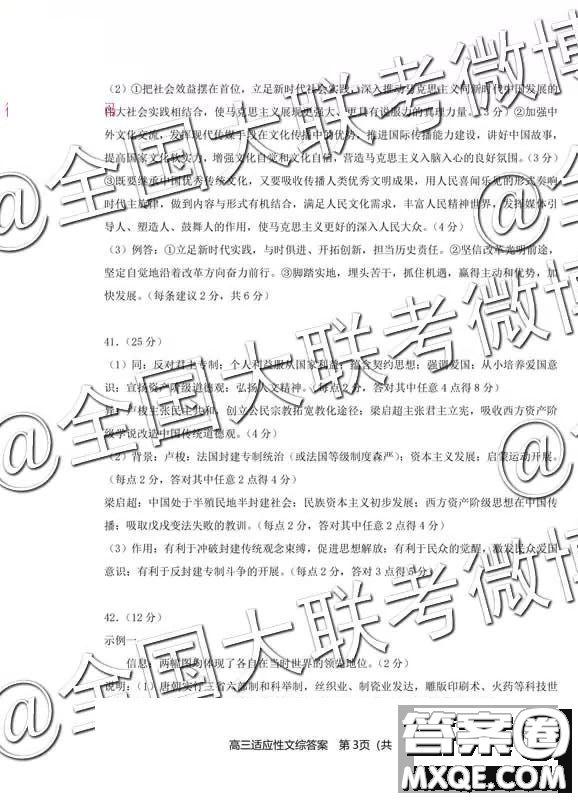 （2）①把社会效益摆在首位，立足新时代社会实践，深入推动马克思主义同新时代中国发展的
伟大社会实践相结合，使马克思主义展现更强大、更具有说服力的真理力量。（3 分）②加强中
外文化交流，发挥现代传媒手段在文化传播中的优势，推进国际传播能力建设，讲好中国故事，
提高国家文化软实力，增强文化自觉和文化自信，营造马克思主义入脑入心的良好氛围。（3 分）
③既要继承中国优秀传统文化，又要吸收传播人类优秀文明成果，用人民喜闻乐见的形式奏响
时代主旋律，做到内容与形式有机结合，满足人民文化需求，丰富人民精神世界，发挥媒体引
导人、塑造人、鼓舞人的作用，使马克思主义更好的深入人民大众。（4 分）
（3）例答：①立足新时代实践，与时俱进、开拓创新，担当历史责任。②坚信改革光明前途，
坚定自觉地沿着改革方向奋力前行。③脚踏实地，埋头苦干，抓住机遇，赢得主动和优势，加
快发展。（每条建议 2 分，共 6 分）
41.（25 分）
（1）同：反对君主专制；个人利益服从国家利益；蕴含契约思想；强调爱国；从小培养爱国意
识；宣扬资产阶级道德观；弘扬人文精神。（每点 2 分，答对其中任意 4 点得 8 分）
异：卢梭主张民主共和，创立公民宗教拓宽教化途径；梁启超主张君主立宪，吸收西方资产阶
级学说改造中国传统道德观。（4 分）
（2）背景：卢梭：法国封建专制统治（或法国等级制度森严）；资本主义发展；启蒙运动开展。
（每点 2 分，答对其中任意 2 点得 4 分）
梁启超：中国处于半殖民地半封建社会；民族资本主义初步发展；西方资产阶级思想在中国传
播；吸取戊戌变法失败的教训。（每点 2 分，答对其中任意 2 点得 4 分）
（3）作用：有利于冲破封建传统观念束缚，促进思想解放；有利于民众的觉醒，激发民众爱国
意识；有利于反封建专制斗争的开展。（每点 2 分，答对 3 点得 5 分）
42.（12 分）
示例一
信息：两幅图均体现了各自在当时世界的领先地位。（2 分）
说明：（1）唐朝实行三省六部制和科举制，丝织业、制瓷业发达，雕版印刷术、火药等科技世
高三适应性文综答案 第 3页（共
@全国大联考微博
@全国大联考微博
@全国大联考微博
答案卷
MXQE.COM